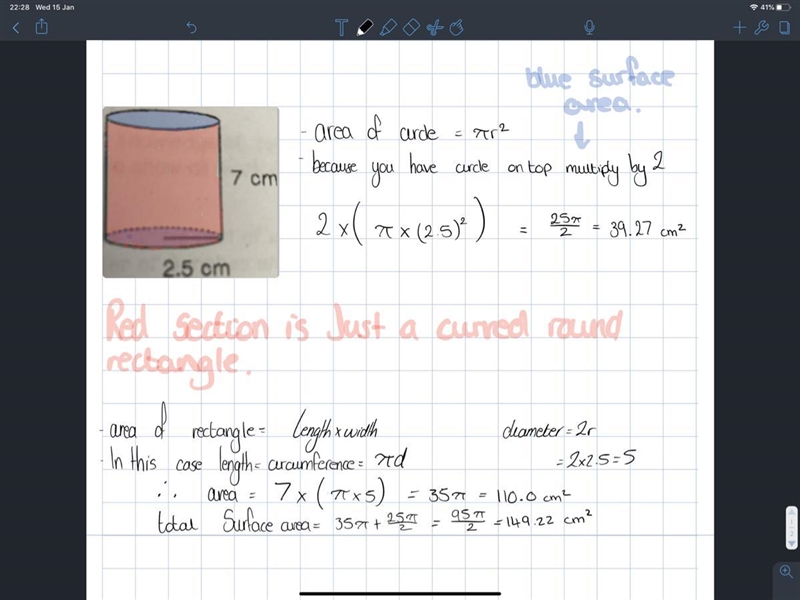 22:28 Wed 15 Jan
41%
blue surface
area.
7 cm
2.5 cm
- area of circle = πr²
- because you have circle on top multiply by 2
2 × ( π × (2.5)² ) = 25π/2 = 39.27 cm²
Red section is Just a curved round
rectangle.
- area of rectangle = Length × width
diameter = 2r
- In this case length = circumference = πd
= 2×2.5 = 5
∴ area = 7 × ( π × 5 ) = 35π = 110.0 cm²
total Surface area = 35π + 25π/2 = 95π/2 = 149.22 cm²